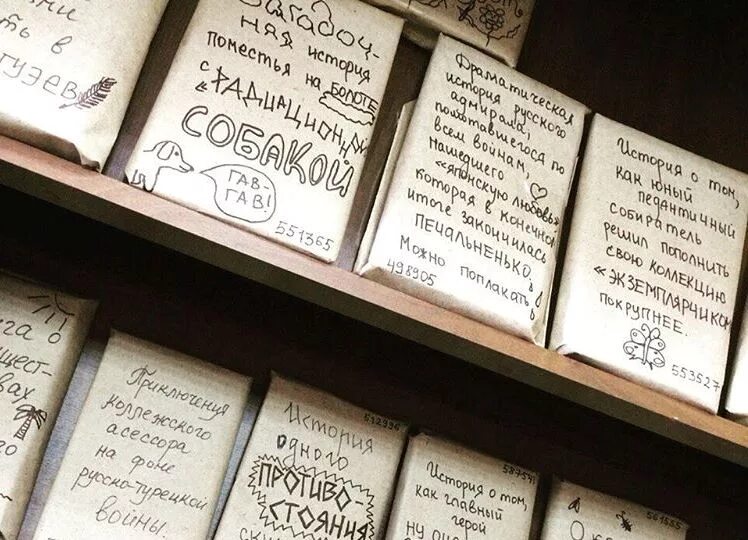 ть в
Загадоч-
ная история
поместья на болоте
с «радиационной
СОБАКОЙ
ГАВ-
ГАВ!
551365
Драматическая
история русского
адмирала,
помотавшегося по
всем войнам,
нашедшего
«японскую любовь»
которая в конечном
итоге закончилась
ПЕЧАЛЬНЕНЬКО.
Можно поплакать
498905
История о том,
как юный
педантичный
собиратель
решил пополнить
свою коллекцию
«ЭКЗЕМПЛЯРЧИКОМ
ПОКРУПНЕЕ.
553527
о
щест-
вах
го
Приключения
коллежского
асессора
на фоне
русско-турецкой
войны.
История
одного
ПРОТИВО-
СТОЯНИЯ
История о том,
как главный
герой
561565